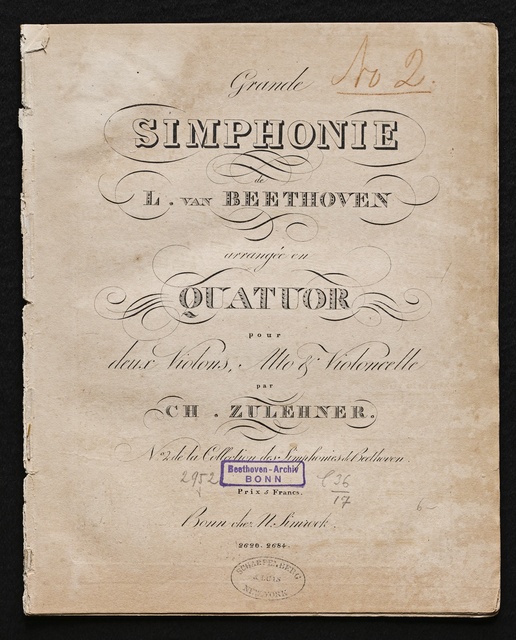 No 2.
Grande
SIMPHONIE
de
L. VAN BEETHOVEN
arrangée en
QUATUOR
pour
deux Violons, Alto & Violoncelle
par
CH. ZULEHNER.
No. 2 de la Collection des Simphonies de Beethoven.
2952
Beethoven-Archiv
BONN
C 36
17
Prix 5 Francs.
6-
Bonn chez N. Simrock.
2620. 2684.
SCHARFENBERG
& LUIS
NEW-YORK